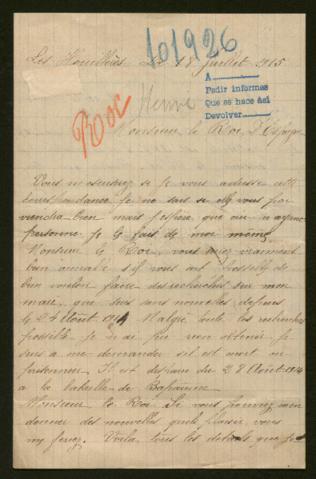 Les Houillères Le 18 juillet 1915
101926
A
Pedir informes
Que se hace así
Devolver
Roc
Monsieur le Roi d'Espagne
Vous m'excuserez si je vous adresse cette
correspondance je ne sais si elle vous par
viendra bien mais j'espère que oui n'ayant
personne je le fait de moi même
Monsieur le Roi, vous seriez vraiment
bien aimable s'il vous est possible de
bien vouloir faire des recherches sur mon
mari, que suis sans nouvelles depuis
le 24 Août 1914 Malgré toute les recherches
possible je n'ai pu rien obtenir je
suis a me demander s'il est mort ou
prisonnier Il est disparu du 28 Août 1914
a la bataille de Bapaume
Monsieur le Roi Si vous pouvez m'en
donner des nouvelles quele plaisir vous
my feriez. Voila tous les détails que je